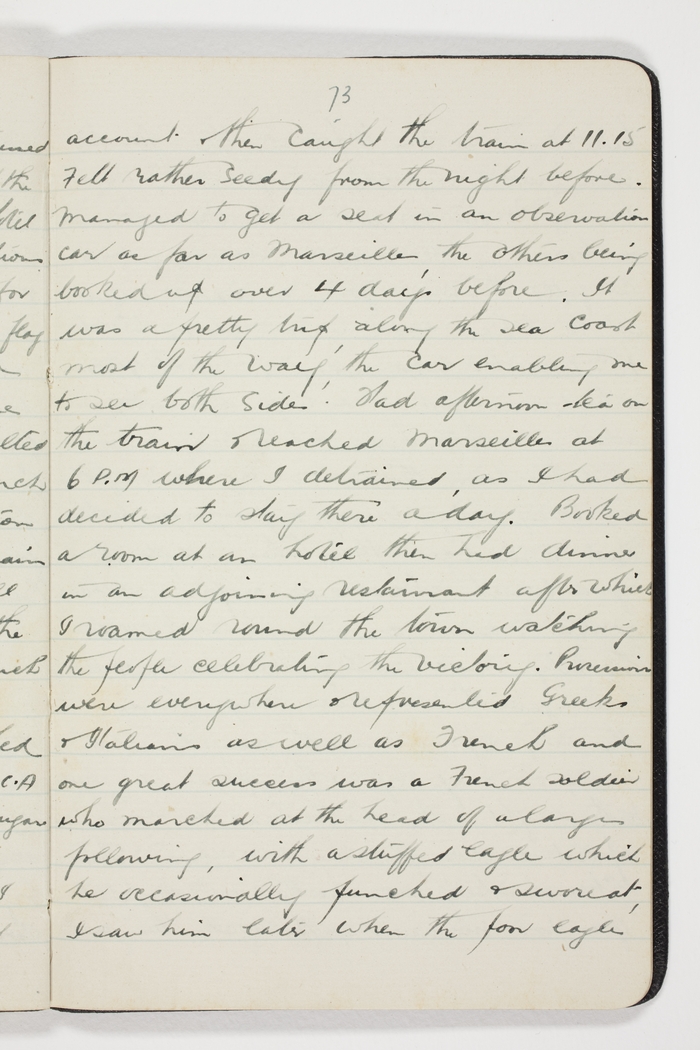 73
account & then caught the train at 11.15
Felt rather seedy from the night before.
Managed to get a seat in an observation
car as far as Marseilles the others being
booked up over 4 days before. It
was a pretty trip, along the sea coast
most of the way, the car enabling me
to see both sides. Had afternoon tea on
the train & reached Marseilles at
6 P.M where I detrained, as I had
decided to stay there a day. Booked
a room at an hotel then had dinner
in an adjoining restaurant after which
I roamed round the town watching
the people celebrating the victory. Procession
were everywhere & represented Greeks
& Italians as well as French and
one great success was a French soldier
who marched at the head of a large
following, with a stuffed eagle which
he occasionally punched & swore at,
I saw him later when the poor eagle